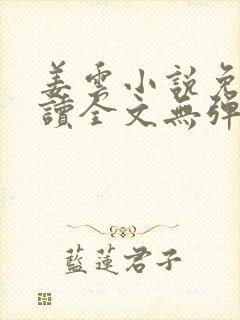 姜雲小說免
讀全文無彈
藍蓮君子